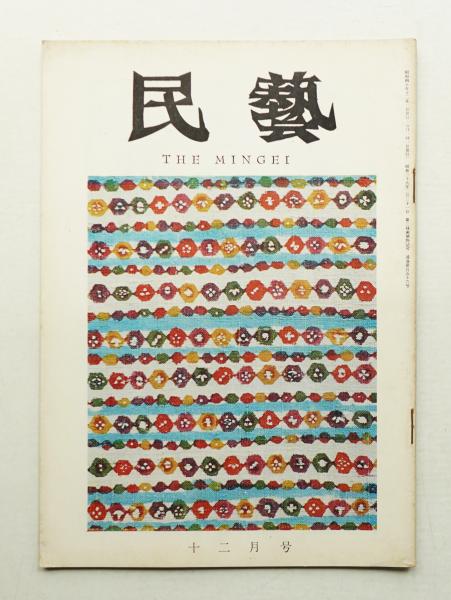 民藝
THE MINGEI
十二月号